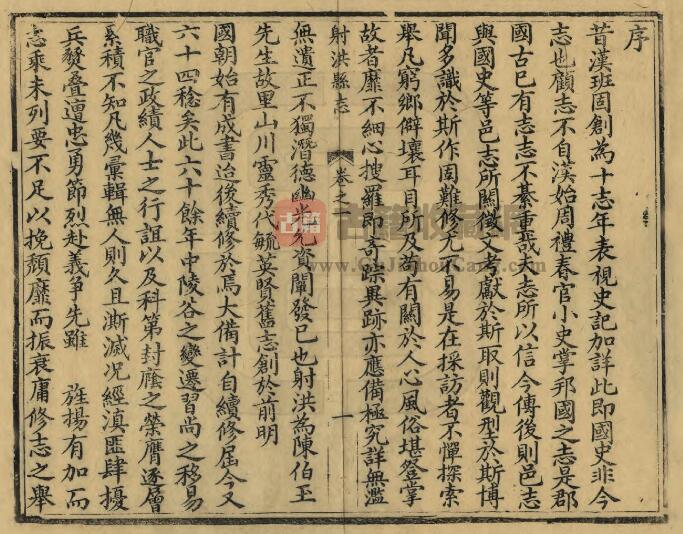 序
昔漢班固創為十志年表視史記加詳此即國史非今
志也顧志不自漢始周禮春官小史掌邦國之志是郡
國古已有志志不綦重哉夫志所以信今傳後則邑志
與國史等邑志所關徵文考獻於斯取則觀型於斯博
聞多識於斯作固難修尤不易是在採訪者不憚探索
舉凡窮鄉僻壤耳目所及苟有關於人心風俗堪登掌
故者靡不細心搜羅即奇踪異跡亦應備極究詳無濫
射洪縣志
卷之一
一
無遺正不獨潛德幽光先資闡發已也射洪為陳伯玉
先生故里山川靈秀代毓英賢舊志創於前明
國朝始有成書迨後續修於焉大備計自續修屆今又
六十四稔矣此六十餘年中陵谷之變遷習尚之移易
職官之政績人士之行誼以及科第封廕之榮膺逐層
累積不知凡幾彙輯無人則久且澌滅况經滇匪肆擾
兵燹叠遭忠勇節烈赴義爭先雖 旌揚有加而
志乘未列要不足以挽頹靡而振衰庸修志之舉
古籍
古籍收藏网
www.GuJiShouCang.com